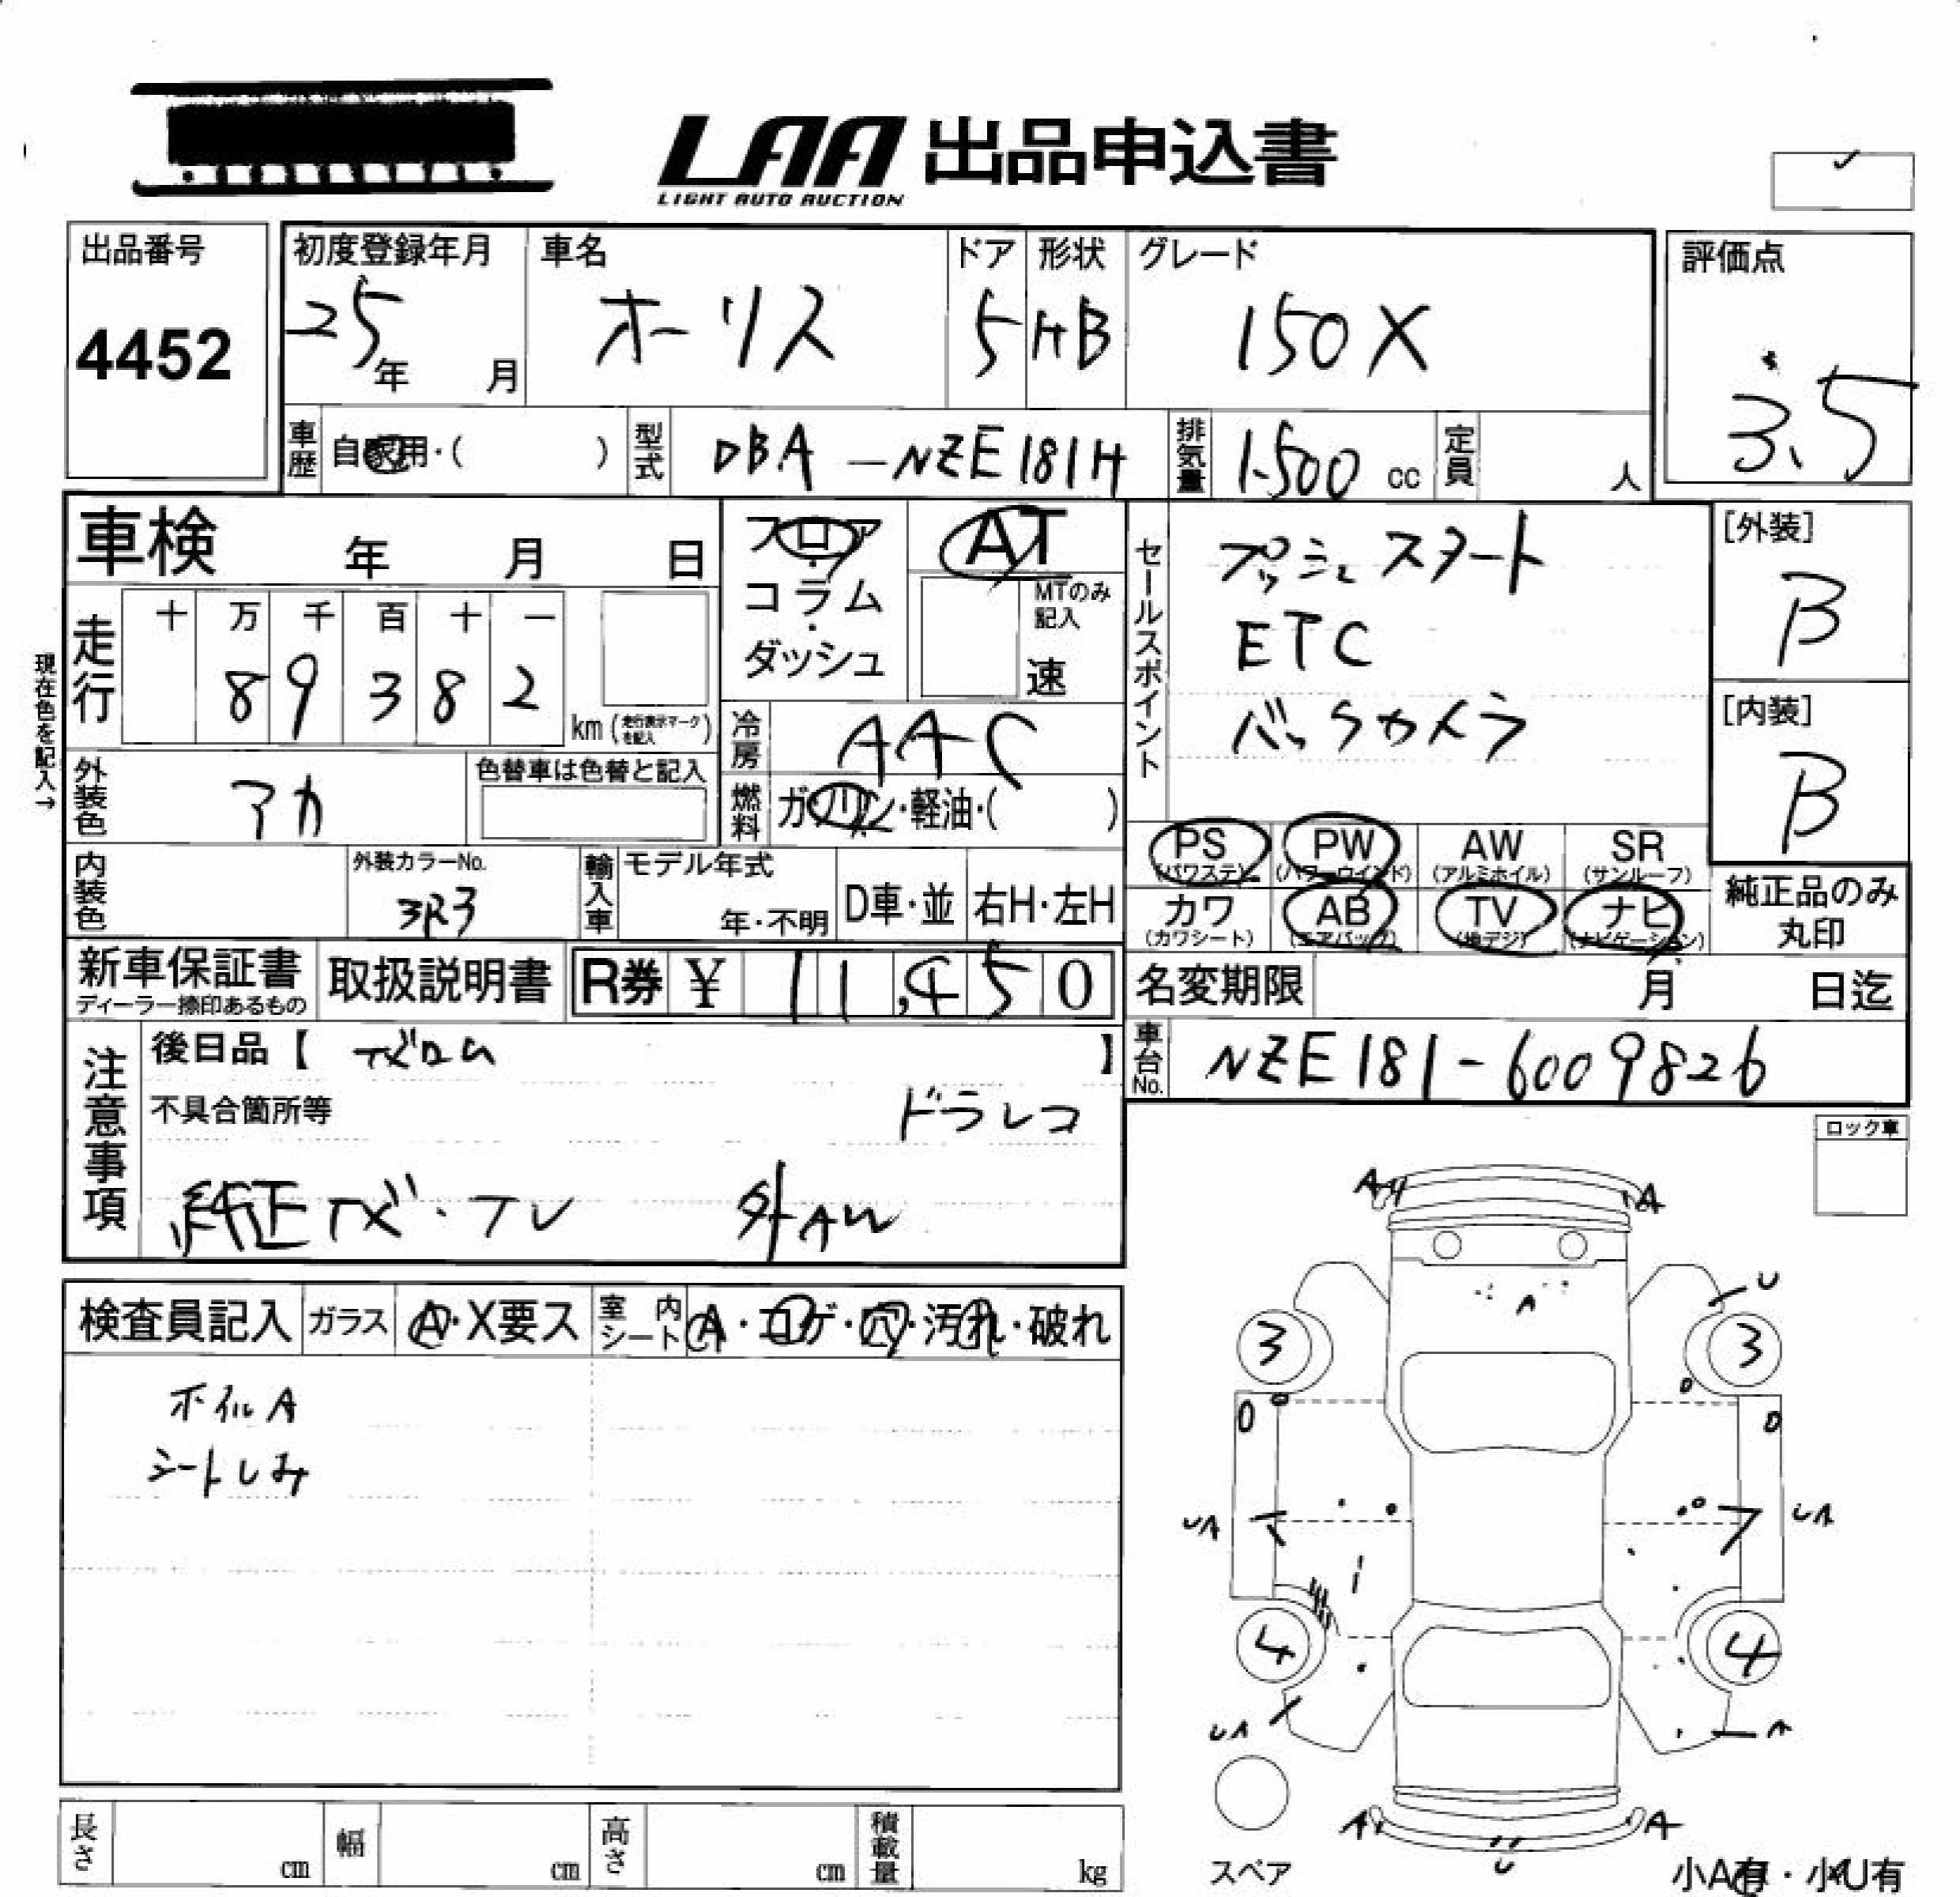 LAA 出品申込書
LIGHT AUTO AUCTION
出品番号
4452
初度登録年月
25年 月
車名
オーリス
ドア
5
形状
HB
グレード
150X
評価点
3.5
車歴
自家用・( )
型式
DBA-NZE181H
排気量
1500 cc
定員
人
車検 年 月 日
フロア
・
コラム
・
ダッシュ
AT
MTのみ
記入
速
セールスポイント
プッシュスタート
ETC
バックカメラ
[外装]
B
[内装]
B
現在色を記入→
走行
十 万 千 百 十 一
8 9 3 8 2
km (走行表示マークを記入)
冷房
AAC
燃料
ガソリン・軽油・( )
外装色
アカ
色替車は色替と記入
内装色
外装カラーNo.
3R3
輸入車
モデル年式
年・不明
D車・並
右H・左H
PS (パワステ)
PW (パワーウインド)
AW (アルミホイル)
SR (サンルーフ)
カワ (カワシート)
AB (エアバッグ)
TV (地デジ)
ナビ (ナビゲーション)
純正品のみ
丸印
新車保証書
ディーラー捺印あるもの
取扱説明書
R券 ¥ 11,450
名変期限 月 日迄
車台No.
NZE181-6009826
注意事項
後日品【 ナビロム 】
不具合箇所等
ドラレコ
純正ナビ・TV 外AW
ロック車
検査員記入
ガラス
A・X要ス
室内シート
A・コゲ・穴・汚れ・破れ
ホイルA
シートしみ
A A
A
U
3 3
UA UA
4 4
UA A
A A
U
スペア
小A有・小U有
長さ cm
幅 cm
高さ cm
積載量 kg